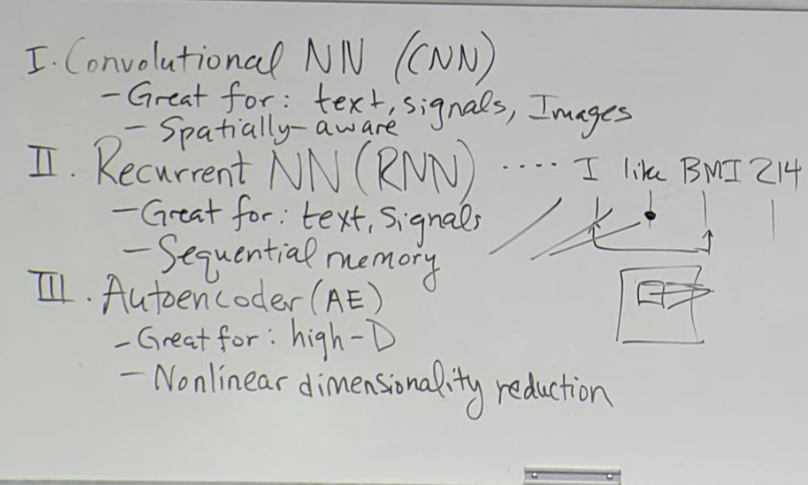 I. Convolutional NN (CNN)
- Great for: text, signals, Images
- Spatially-aware
II. Recurrent NN (RNN) .... I like BMI 214
- Great for: text, signals
- Sequential memory
III. Autoencoder (AE)
- Great for: high-D
- Nonlinear dimensionality reduction